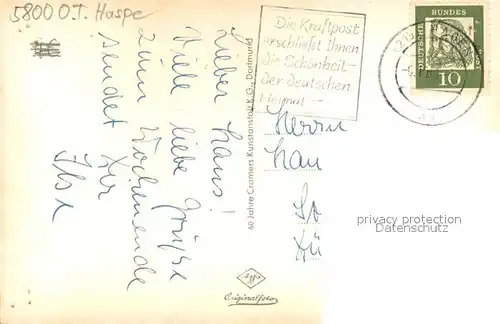 5800 O.T. Haspe
Die Kraftpost
erschließt Ihnen
die Schönheit
der deutschen
Heimat
DEUTSCHE BUNDESPOST
10
Lieber Hans!
Viele liebe Grüße
zum Wochenende
sendet Dir
Ilse
60 Jahre Cramers Kunstanstalt K.G., Dortmund
Herrn
Han
privacy protection
Datenschutz
Agfa
Originalfoto